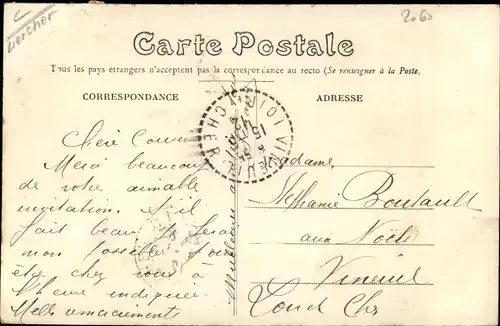 Loir et Cher
2060
Carte Postale
Tous les pays étrangers n'acceptent pas la correspondance au recto (Se renseigner à la Poste.
CORRESPONDANCE
ADRESSE
VINEUIL
Chère
Merci beaucoup
de votre aimable
invitation. S'il
fait beau je ferai
mon possible pour
être chez vous à
l'heure indiquée
amicalement
Madame
Stéphanie Boutault
aux Noëls
Vineuil
Loir et Cher